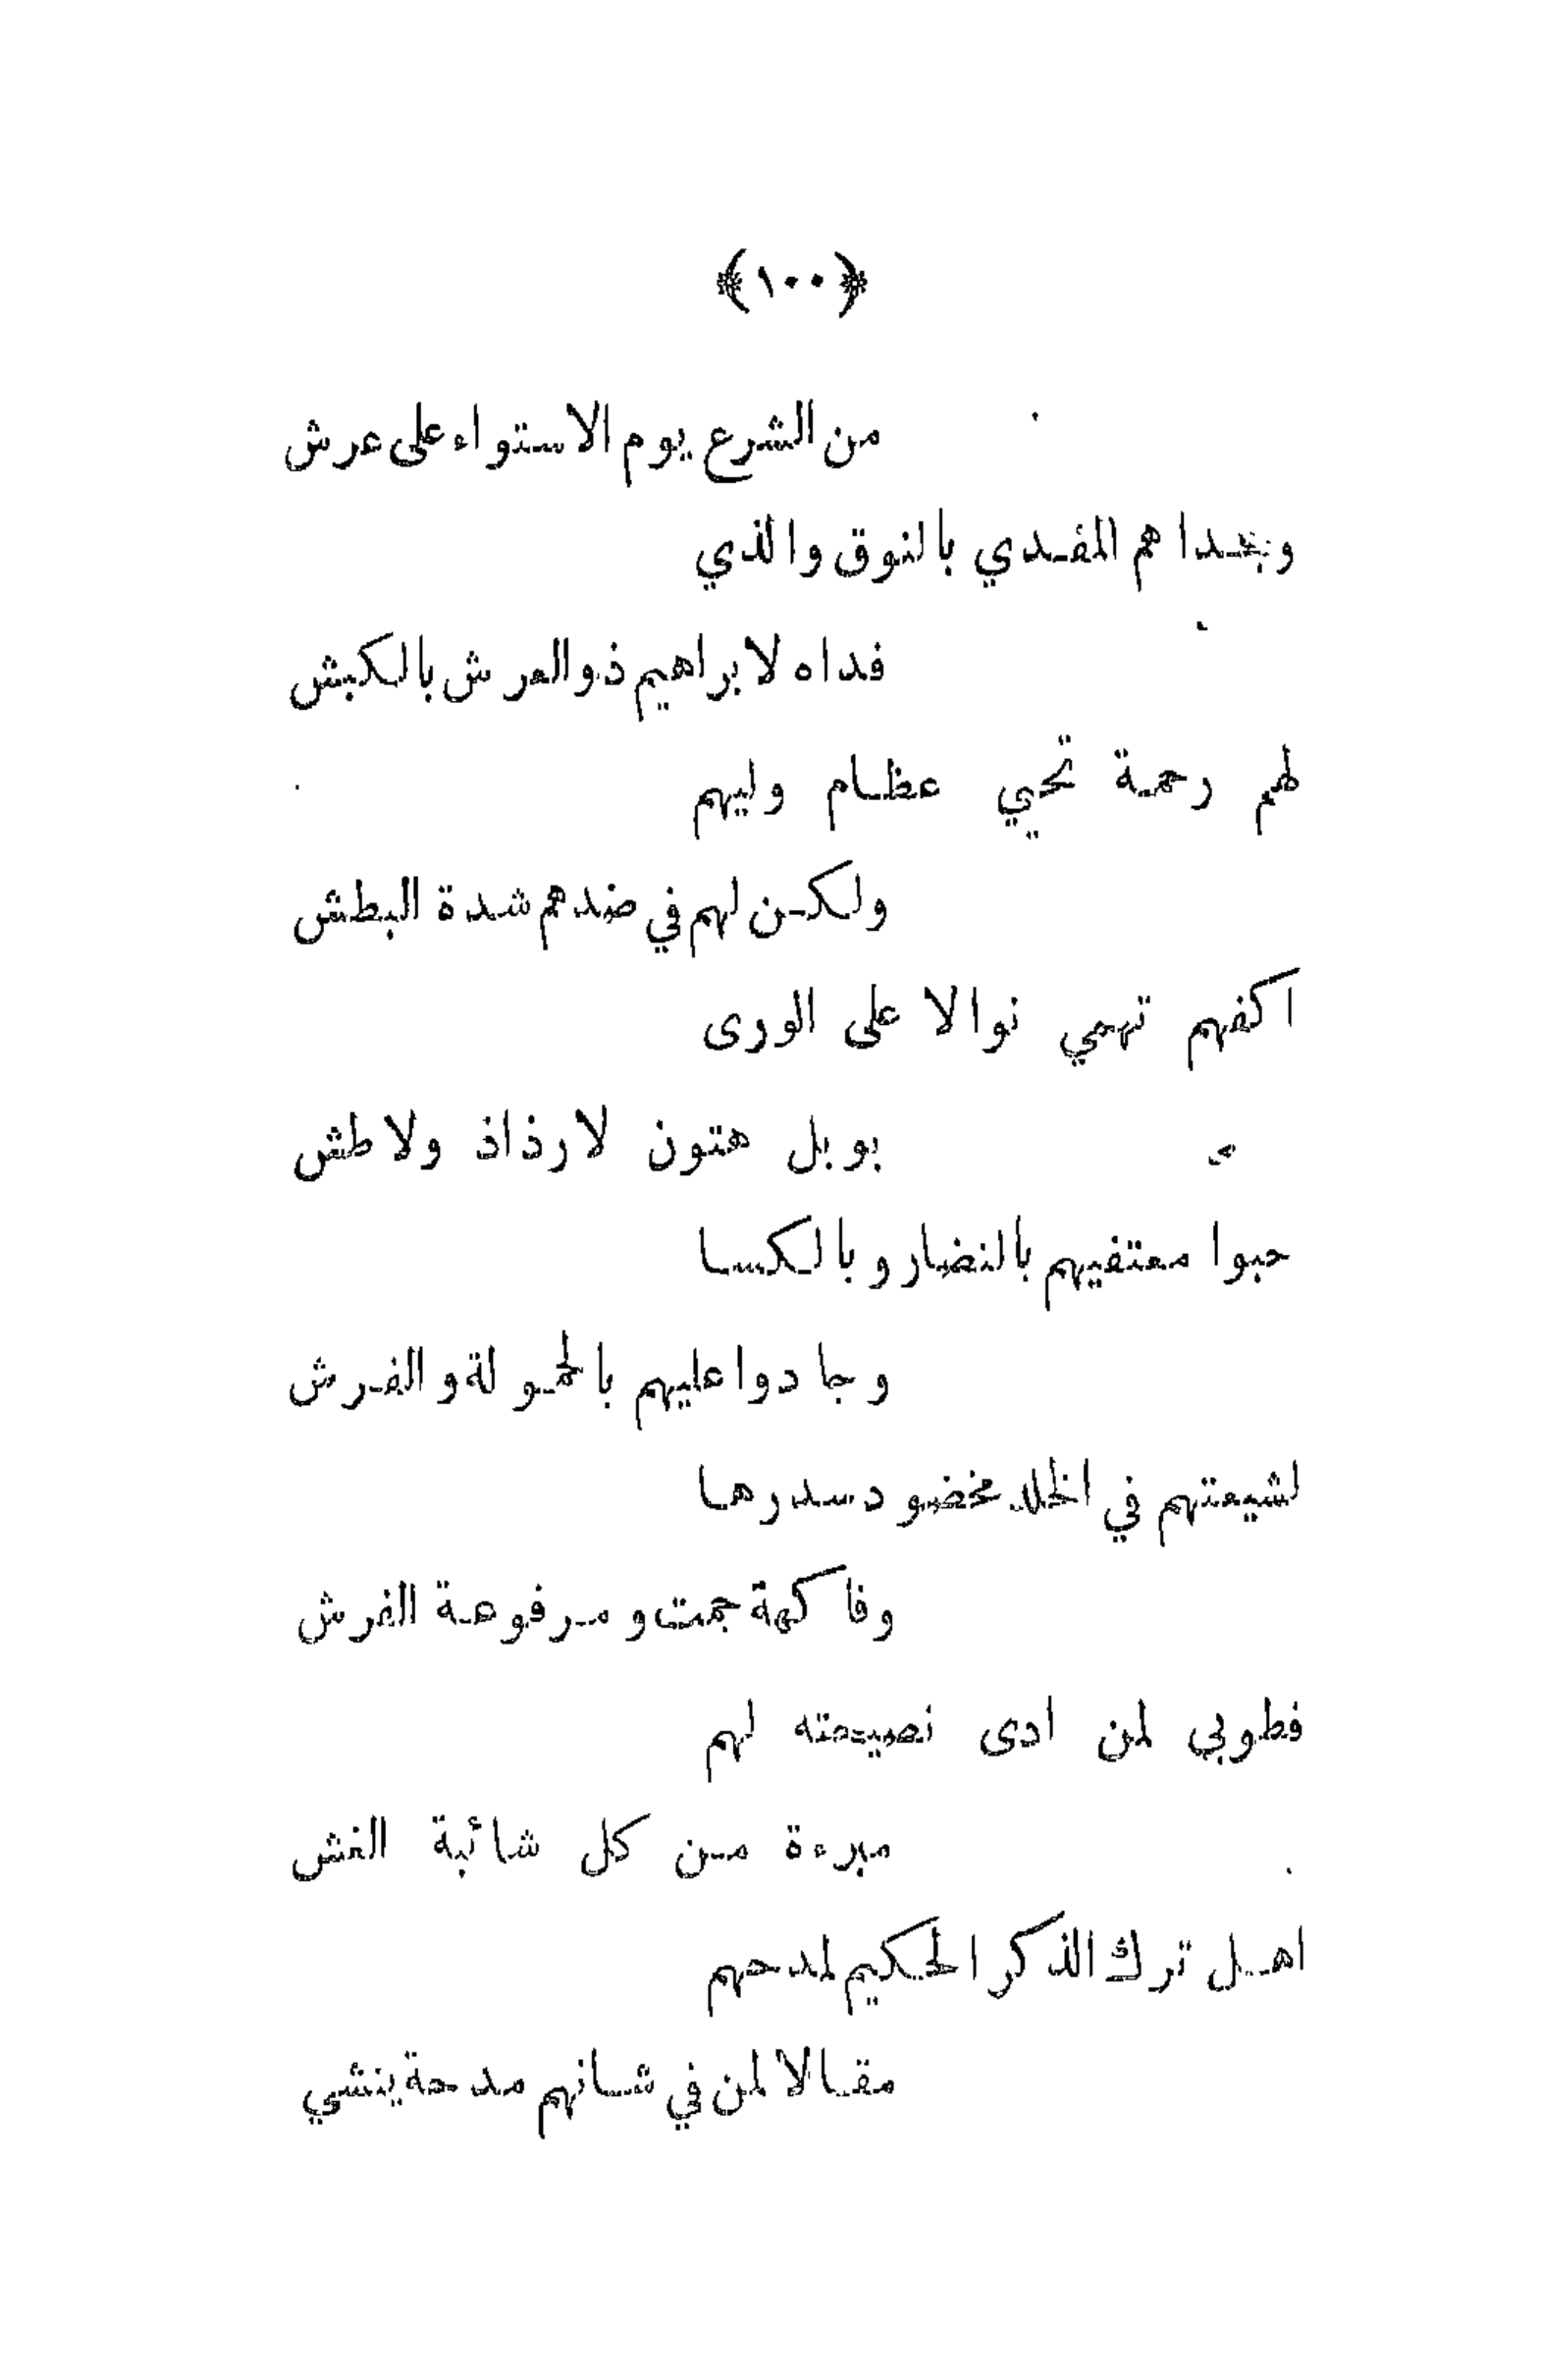 ﴿١٠٠﴾
من الشرع يوم الاستواء على عرش
وبجداهم المفدي بالنوق والذي
فداه لابراهيم ذو العرش بالكبش
لهم رحمة تحيي عظام وليهم
ولكن لهم في ضدهم شدة البطش
اكفهم تهمي نوالا على الورى
بوبل هتون لا رذاذ ولا طش
حبوا معتفيهم بالنضار وبالكسا
وجادوا عليهم بالحمولة والفرش
لشيعتهم في الخلد مخضود سدرها
وفاكهة جمت ومرفوعة الفرش
فطوبى لمن ادى نصيحته لهم
مبرءة من كل شائبة الغش
اهل ترك الذكر الحكيم لمدحهم
مقالا لمن في شانهم مدحة ينشي